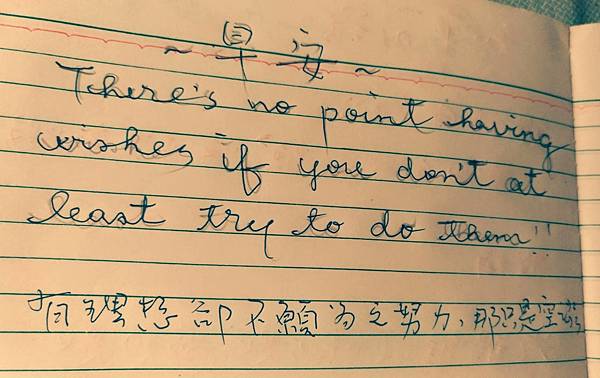 ~早安~
There's no point having
wishes if you don't at
least try to do them!!
有理想卻不願為之努力，那只是空談